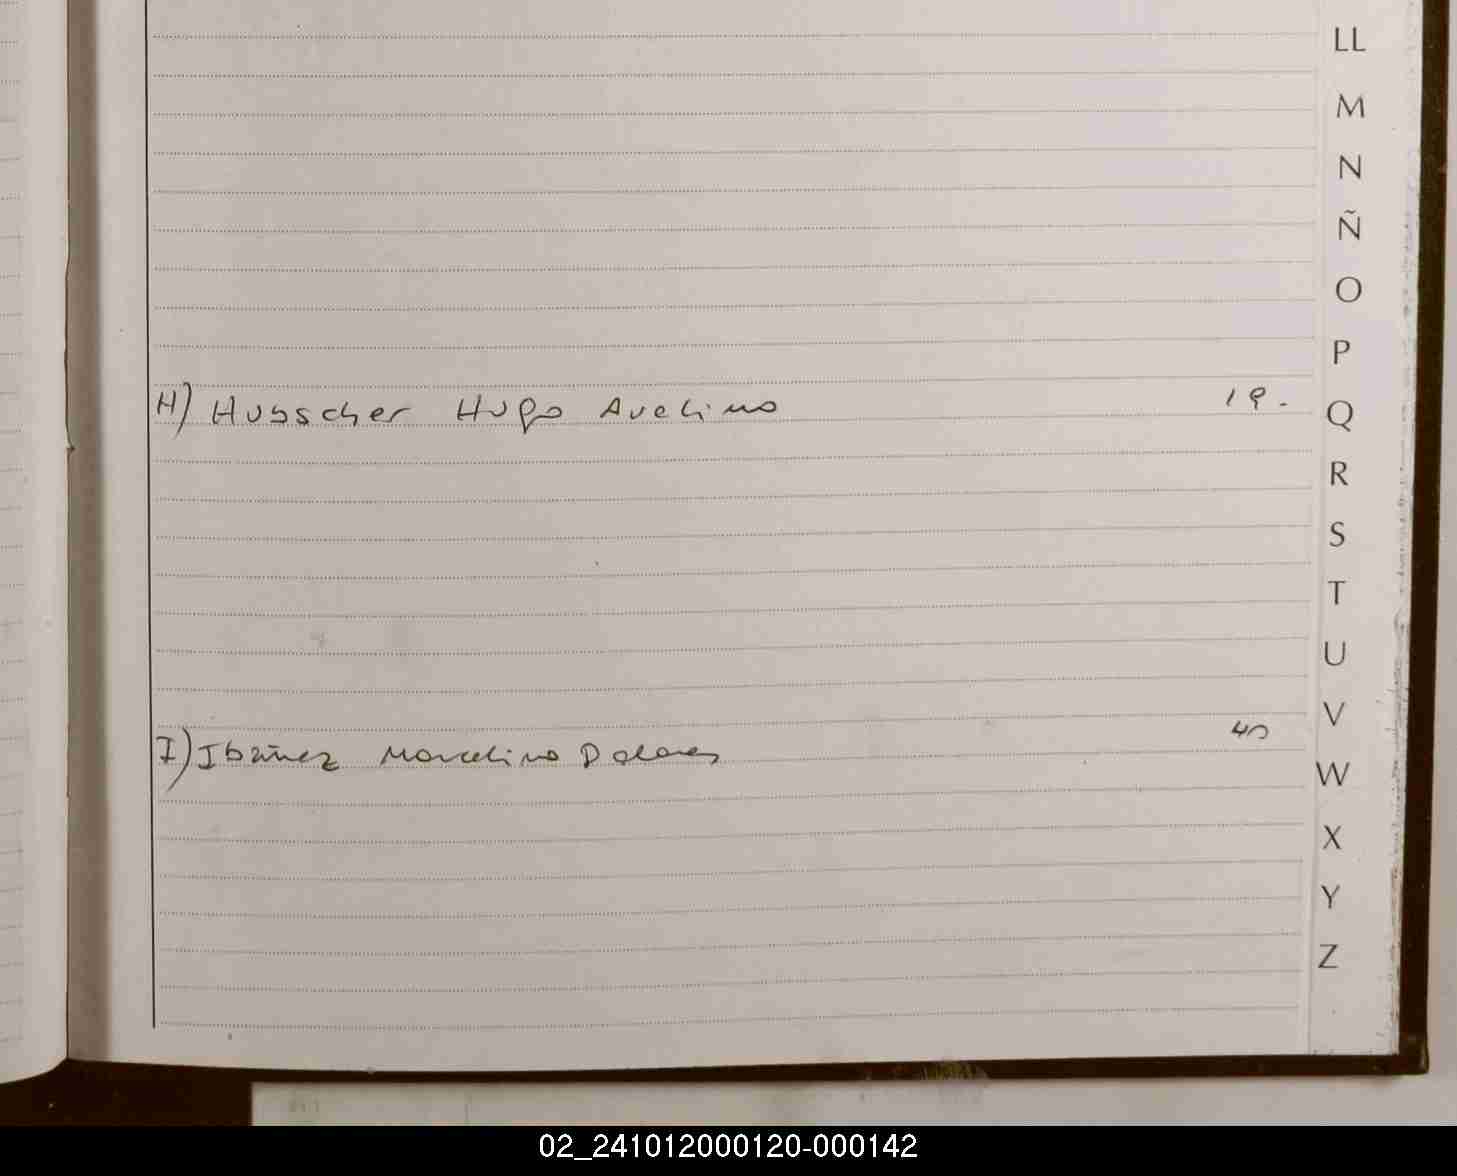 LL
M
N
Ñ
O
P
H) Hubscher Hugo Avelino 19.
Q
R
S
T
U
V
I) Ibañez Marcelino Dolores 40
W
X
Y
Z
02_241012000120-000142